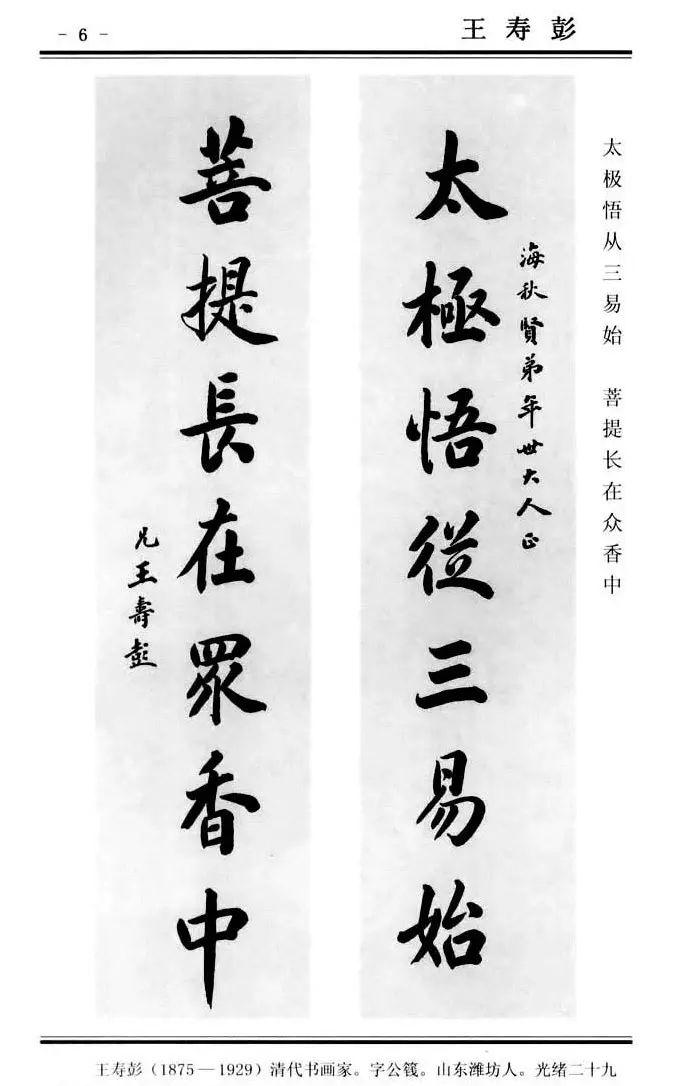 - 6 -
王寿彭
太极悟从三易始 菩提长在众香中
海秋賢弟年世大人正
太極悟從三易始
菩提長在眾香中
兄王壽彭
王寿彭（1875—1929）清代书画家。字公篯。山东潍坊人。光绪二十九